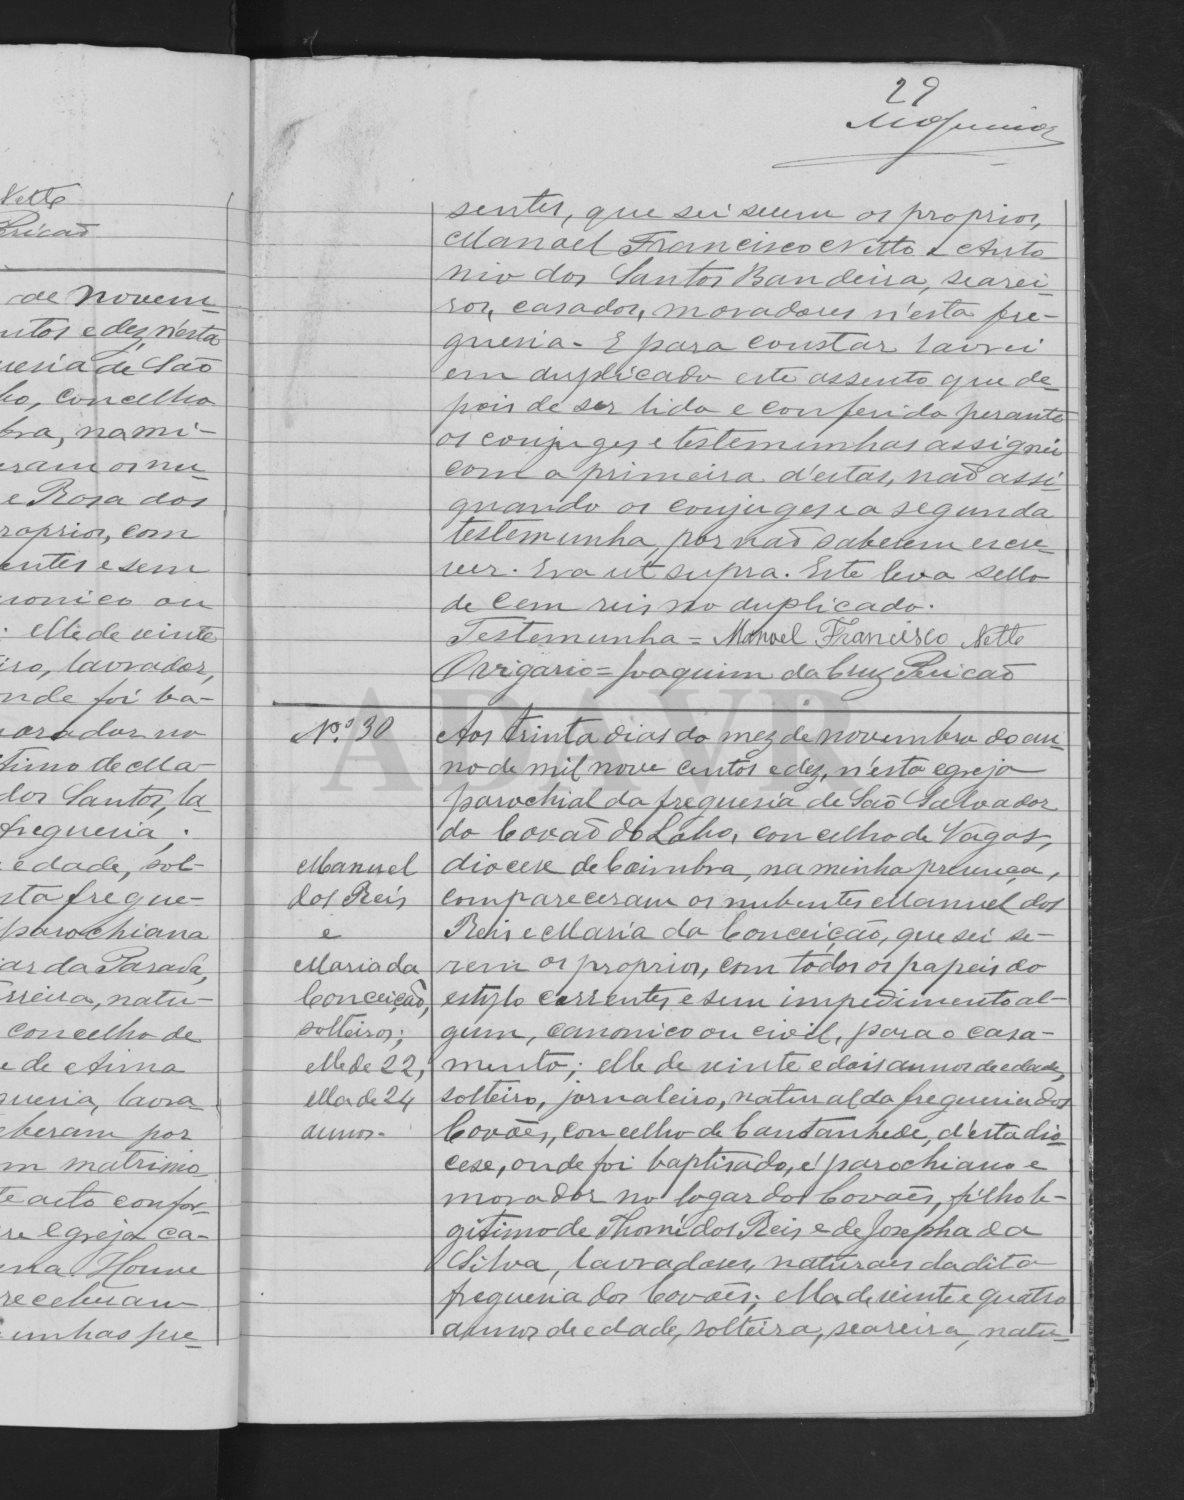 Netto
Pericaõ
de Novem-
ntos e dez, n'esta
uesia de Saõ
bo, concelho
bra, na mi-
eram os nu-
e Rosa dos
roprios, com
entes e sem
nonico ou
: elle de veinte
iro, lavrador,
onde foi ba-
orador no
timo de Ma-
dos Santos, la-
freguesia;
edade, sol-
sta fregue-
parochiana
gar da Parada,
rreira, natu-
concelho de
e de Anna
guesia, lavra-
eberam por
m matrimo-
te acto confor-
re Egreja ca-
na. Houve
receberam
unhas pre-
29
sentes, que sei serem os proprios,
Manoel Francisco Netto e Anto-
nio dos Santos Bandeira, searei-
ros, casados, moradores n'esta fre-
guesia. E para constar lavrei
em duplicado este assento que de-
pois de ser lido e conferido perante
os conjuges e testemunhas assignei
com a primeira d'estas, naõ assi-
gnando os conjuges e a segunda
testemunha, por naõ saberem escre-
ver. Era ut supra. Este leva sello
de cem reis no duplicado.
Testemunha = Manoel Francisco Netto
O vigario = Joaquim da Cruz Pericaõ
ADAVR
N.º 30
Manuel
dos Reis
e
Maria da
Conceição,
solteiros;
elle de 22,
ella de 24
annos.
Aos trinta dias do mez de novembro do an-
no de mil nove centos e dez, n'esta egreja
parochial da freguesia de Saõ Salvador
do Covaõ do Lobo, concelho de Vagos,
diocese de Coimbra, na minha presença,
compareceram os nubentes Manuel dos
Reis e Maria da Conceição, que sei se-
rem os proprios, com todos os papeis do
estylo correntes, e sem impedimento al-
gum, canonico ou civil, para o casa-
mento; elle de veinte e dois annos de edade,
solteiro, jornaleiro, natural da freguesia dos
Covões, concelho de Cantanhede, d'esta dio-
cese, onde foi baptisado, é parochiano e
morador no logar dos Covões, filho le-
gitimo de Thomé dos Reis e de Josepha da
Silva, lavradores, naturaes da dita
freguesia dos Covões; ella de veinte e quatro
annos de edade, solteira, seareira, natu-